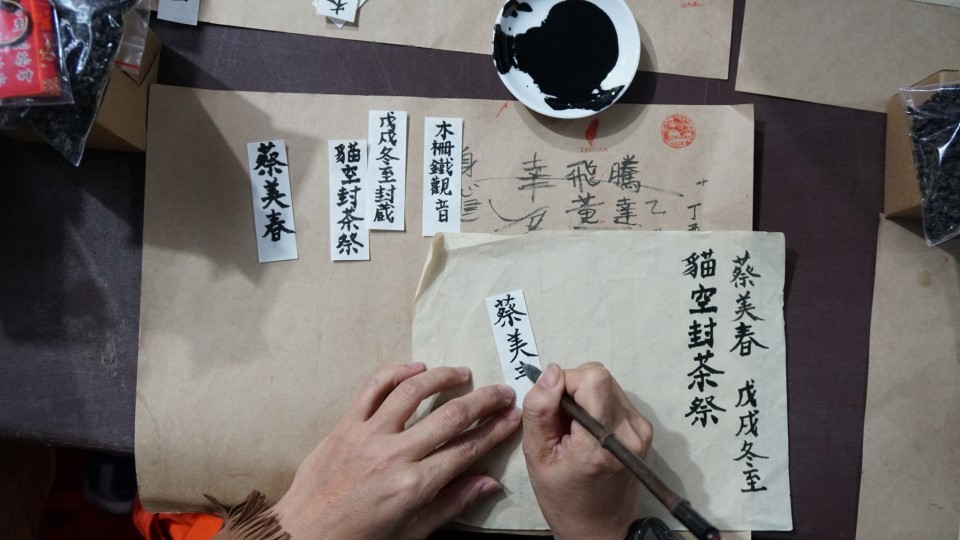 木柵鐵觀音
戊戌冬至封蔵
貓空封茶祭
蔡美春
騰達
飛黃
幸
身心
蔡美春 戊戌冬至
貓空封茶祭
蔡美